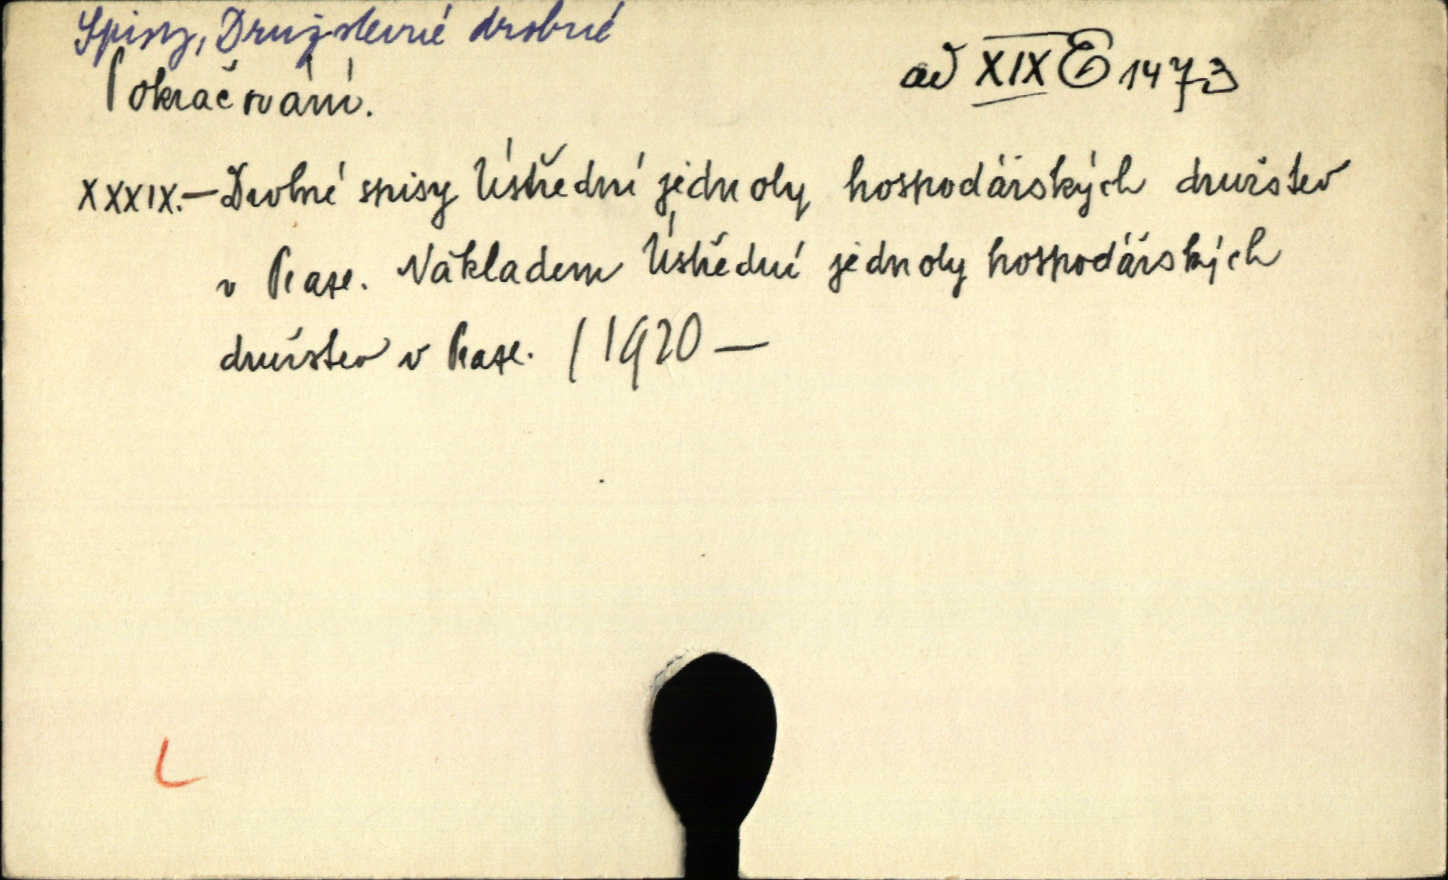 Spisy, Družstevní drobné
ad XIX E 1473
Pokračování.
XXXIX.— Drobné spisy Ústřední jednoty hospodářských družstev
v Praze. Nákladem Ústřední jednoty hospodářských
družstev v Praze. / 1920 —
L